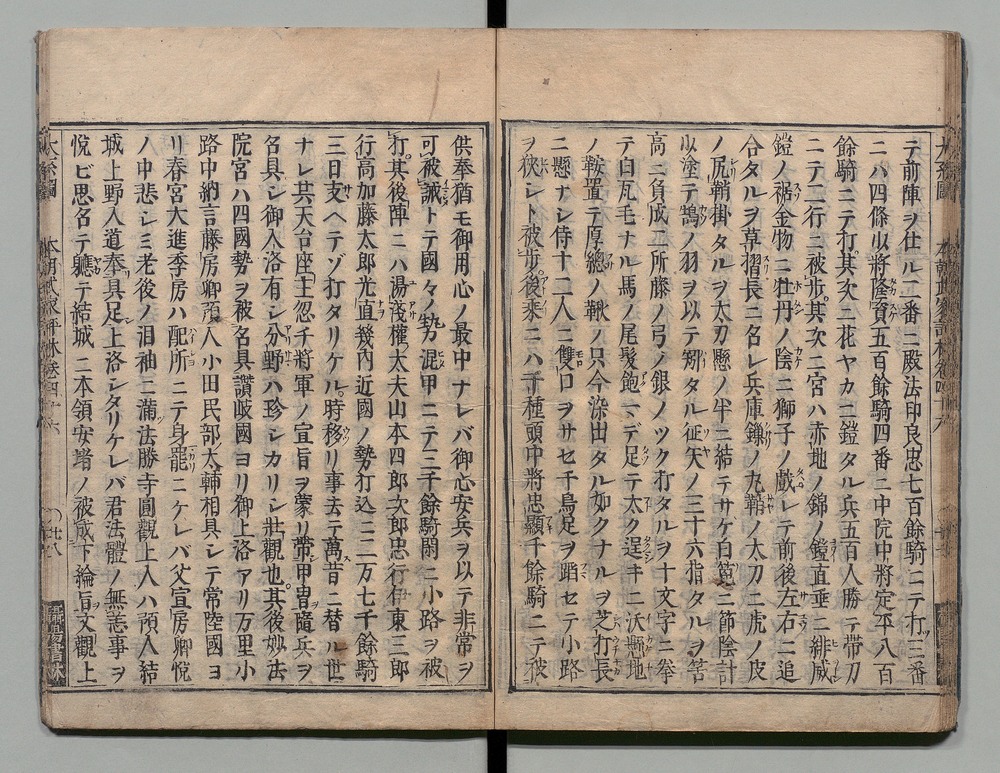 テ前陣ヲ仕ル二番ニ殿法印良忠七百餘騎ニテ打ツ三番
ニハ四條少將隆資五百餘騎四番ニ中院中將定平八百
餘騎ニテ打其次ニ花ヤカニ鎧タル兵五百人勝テ帶刀
ニテ二行ニ被歩其次ニ宮ハ赤地ノ錦ノ鎧直垂ニ緋威
鎧ノ裾金物ニ牡丹ノ陰ニ獅子ノ戯レテ前後左右ニ追
合タルヲ草摺長ニ召レ兵庫鎖ノ丸鞘ノ太刀ニ虎ノ皮
ノ尻鞘掛タルヲ太刀懸ノ半ニ結テサケ白箆ニ節陰計
少塗テ鵠ノ羽ヲ以テ矧タル征矢ノ三十六指タルヲ筈
高ニ負成二所藤ノ弓ノ銀ノツク打タルヲ十文字ニ拳
テ白瓦毛ナル馬ノ尾髮飽マデ足テ太ク逞キニ沃懸地
ノ鞍置テ厚總ノ鞦ノ只今染出タル如クナルヲ芝打長
ニ懸ナシ侍十二人ニ雙口ヲサセ千鳥足ヲ蹈セテ小路
ヲ狹シト被歩後乘ニハ千種頭中將忠顯千餘騎ニテ被
供奉猶モ御用心ノ最中ナレバ御心安兵ヲ以テ非常ヲ
可被誡トテ國々ノ勢混甲ニテ三千餘騎閑ニ小路ヲ被
打其後陣ニハ湯淺權太夫山本四郎次郎忠行伊東三郎
行高加藤太郎光直畿內近國ノ勢打込ニ二万七千餘騎
三日支ヘテゾ打タリケル時移リ事去テ萬昔ニ替ル世
ナレ共天台座主忽千將軍ノ宣旨ヲ蒙リ帶甲冑隨兵ヲ
召具シ御入洛有シ分野ハ珍シカリシ壯觀也其後妙法
院宮ハ四國勢ヲ被召具讚岐國ヨリ御上洛アリ万里小
路中納言藤房卿預人小田民部太輔相具シテ常陸國ヨ
リ春宮大進季房ハ配所ニテ身罷ニケレバ父宣房卿悅
ノ中悲シミ老後ノ泪袖ニ滿法勝寺圓觀上人ハ預人結
城上野入道奉具足上洛シタリケレバ君法體ノ無恙事ヲ
悅ビ思召テ軈テ結城ニ本領安堵ノ被成下綸旨文觀上